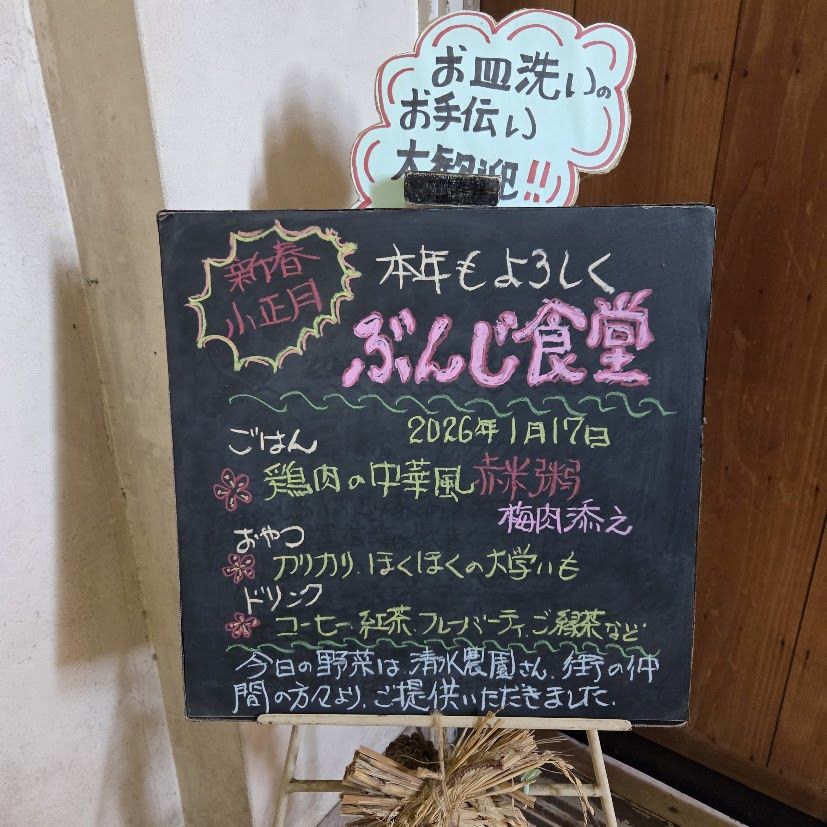 お皿洗いの
お手伝い
大歓迎!!
新春
小正月
本年もよろしく
ぶんじ食堂
ごはん
2026年1月17日
鶏肉の中華風赤米粥
梅肉添え
おやつ
カリカリ、ほくほくの大学いも
ドリンク
コーヒー、紅茶、フレーバーティ、ご緑茶など
今日の野菜は、清水農園さん、街の仲
間の方々より、ご提供いただきました。